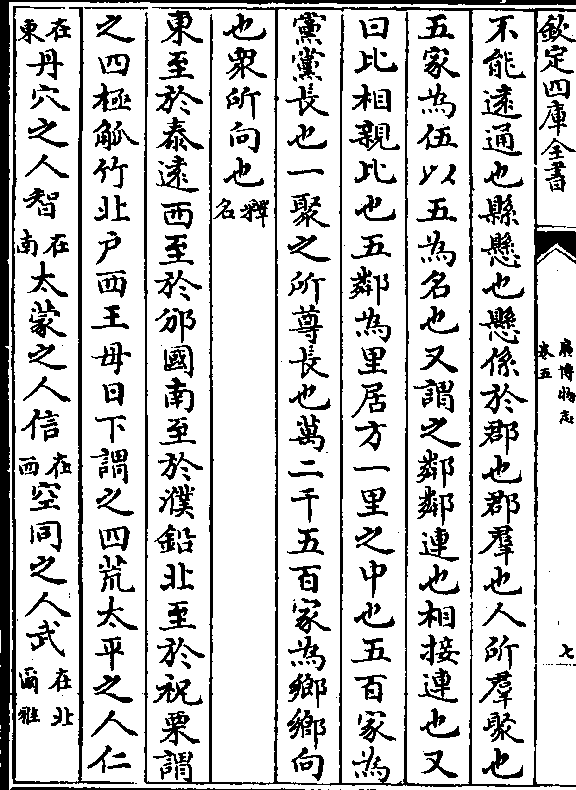 欽定四庫全書
廣博物志
卷五
七
不能逺通也縣懸也懸係於郡也郡羣也人所羣聚也
五家為伍以五為名也又謂之鄰鄰連也相接連也又
曰比相親比也五鄰為里居方一里之中也五百家為
黨黨長也一聚之所尊長也萬二千五百家為鄉鄉向
也衆所向也釋名
東至於泰逺西至於邠國南至於濮鉛北至於祝栗謂
之四極觚竹北户西王母日下謂之四荒太平之人仁
在東丹穴之人智在南太蒙之人信在西空同之人武在北爾雅